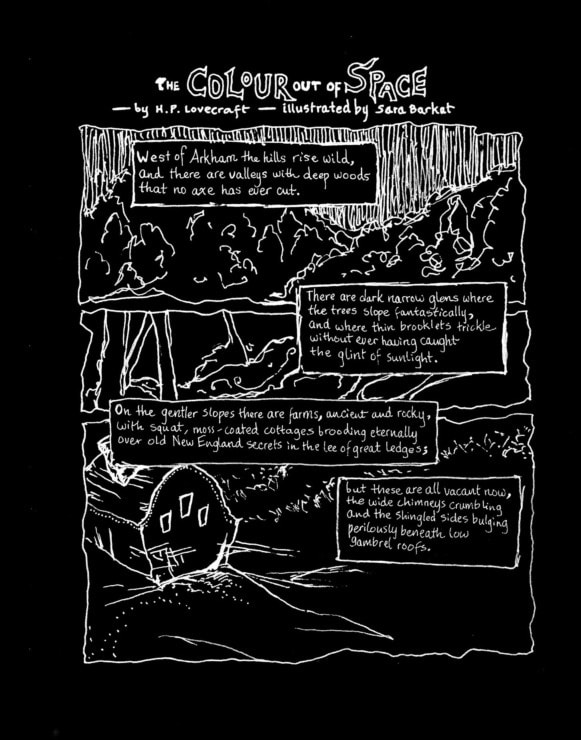 THE COLOUR OUT OF SPACE
— by H.P. Lovecraft — illustrated by Sara Barkat
West of Arkham the hills rise wild,
and there are valleys with deep woods
that no axe has ever cut.
There are dark narrow glens where
the trees slope fantastically,
and where thin brooklets trickle
without ever having caught
the glint of sunlight.
On the gentler slopes there are farms, ancient and rocky,
with squat, moss-coated cottages brooding eternally
over old New England secrets in the lee of great ledges;
but these are all vacant now,
the wide chimneys crumbling
and the shingled sides bulging
perilously beneath low
gambrel roofs.